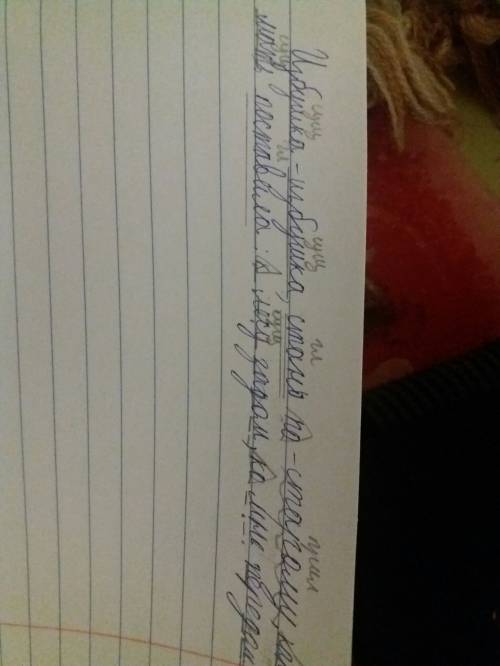 сущ сущ гл прил
Избушка - избушка, стань по-старому, ка
сущ гл сущ
мать поставила: к лесу задом, ко мне передом